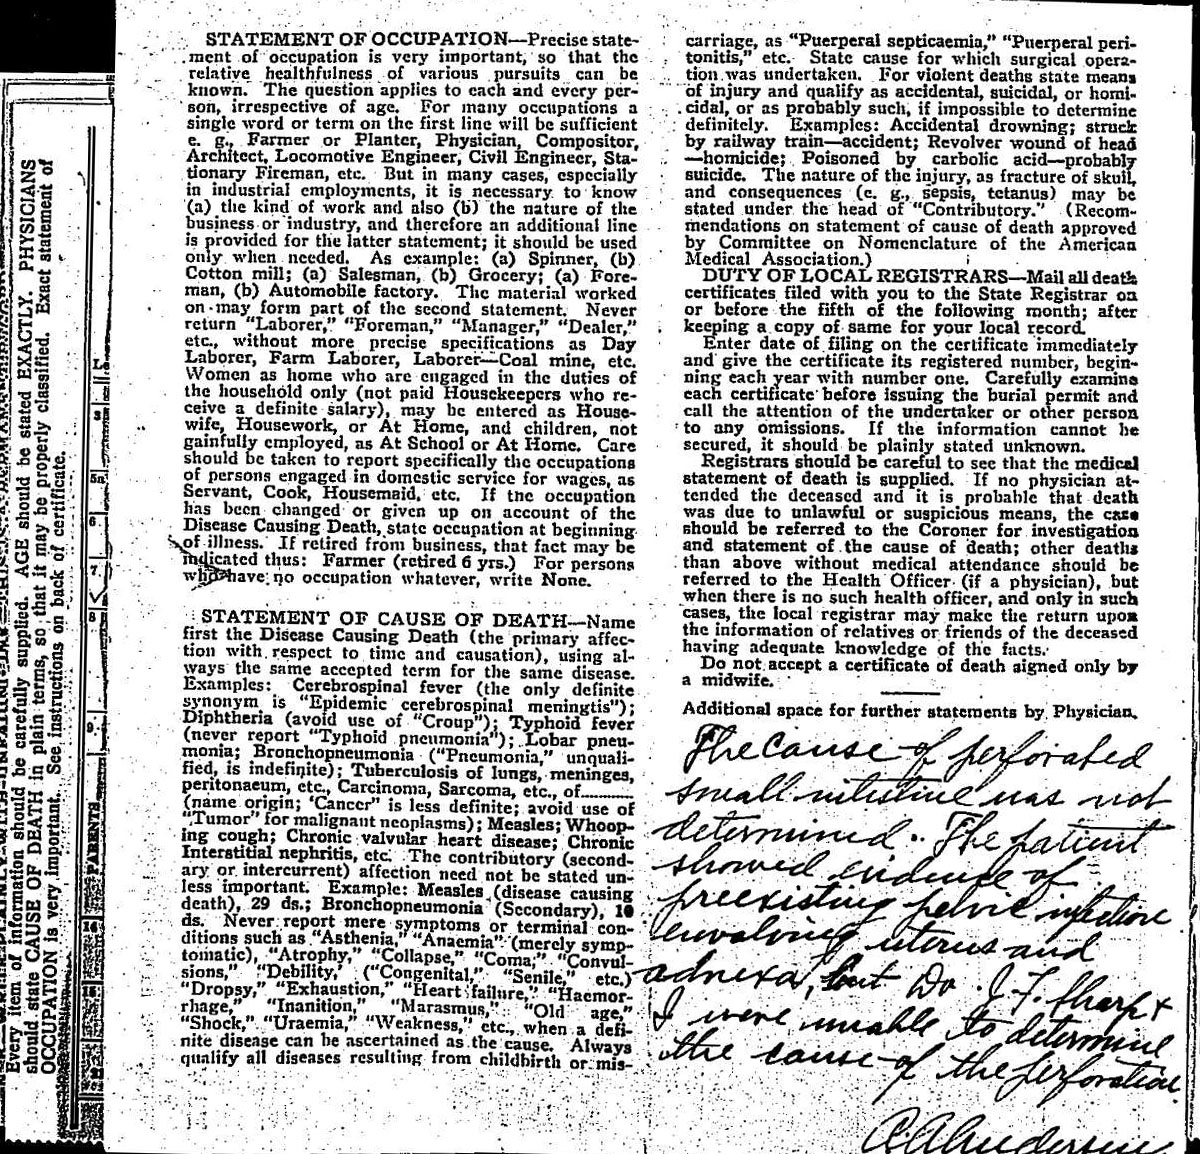 Every item of information should be carefully supplied. AGE should be stated EXACTLY. PHYSICIANS
should state CAUSE OF DEATH in plain terms, so that it may be properly classified. Exact statement of
OCCUPATION is very important. See instructions on back of certificate.
3
5a
6
7
8
9
PARENTS
14
15
STATEMENT OF OCCUPATION—Precise state-
ment of occupation is very important, so that the
relative healthfulness of various pursuits can be
known. The question applies to each and every per-
son, irrespective of age. For many occupations a
single word or term on the first line will be sufficient
e. g., Farmer or Planter, Physician, Compositor,
Architect, Locomotive Engineer, Civil Engineer, Sta-
tionary Fireman, etc. But in many cases, especially
in industrial employments, it is necessary to know
(a) the kind of work and also (b) the nature of the
business or industry, and therefore an additional line
is provided for the latter statement; it should be used
only when needed. As example: (a) Spinner, (b)
Cotton mill; (a) Salesman, (b) Grocery; (a) Fore-
man, (b) Automobile factory. The material worked
on may form part of the second statement. Never
return "Laborer," "Foreman," "Manager," "Dealer,"
etc., without more precise specifications as Day
Laborer, Farm Laborer, Laborer—Coal mine, etc.
Women as home who are engaged in the duties of
the household only (not paid Housekeepers who re-
ceive a definite salary), may be entered as House-
wife, Housework, or At Home, and children, not
gainfully employed, as At School or At Home. Care
should be taken to report specifically the occupations
of persons engaged in domestic service for wages, as
Servant, Cook, Housemaid, etc. If the occupation
has been changed or given up on account of the
Disease Causing Death, state occupation at beginning
of illness. If retired from business, that fact may be
indicated thus: Farmer (retired 6 yrs.) For persons
who have no occupation whatever, write None.
STATEMENT OF CAUSE OF DEATH—Name
first the Disease Causing Death (the primary affec-
tion with respect to time and causation), using al-
ways the same accepted term for the same disease.
Examples: Cerebrospinal fever (the only definite
synonym is "Epidemic cerebrospinal meningtis");
Diphtheria (avoid use of "Croup"); Typhoid fever
(never report "Typhoid pneumonia"); Lobar pneu-
monia; Bronchopneumonia ("Pneumonia," unquali-
fied, is indefinite); Tuberculosis of lungs, meninges,
peritonaeum, etc., Carcinoma, Sarcoma, etc., of...........
(name origin; 'Cancer" is less definite; avoid use of
"Tumor" for malignant neoplasms); Measles; Whoop-
ing cough; Chronic valvular heart disease; Chronic
Interstitial nephritis, etc. The contributory (second-
ary or intercurrent) affection need not be stated un-
less important. Example: Measles (disease causing
death), 29 ds.; Bronchopneumonia (Secondary), 10
ds. Never report mere symptoms or terminal con-
ditions such as "Asthenia," "Anaemia" (merely symp-
tomatic), "Atrophy," "Collapse," "Coma," "Convul-
sions," "Debility,' ("Congenital," "Senile," etc.)
"Dropsy," "Exhaustion," "Heart failure," "Haemor-
rhage," "Inanition," "Marasmus," "Old age,"
"Shock," "Uraemia," "Weakness," etc., when a defi-
nite disease can be ascertained as the cause. Always
qualify all diseases resulting from childbirth or mis-
carriage, as "Puerperal septicaemia," "Puerperal peri-
tonitis," etc. State cause for which surgical opera-
tion was undertaken. For violent deaths state means
of injury and qualify as accidental, suicidal, or homi-
cidal, or as probably such, if impossible to determine
definitely. Examples: Accidental drowning; struck
by railway train—accident; Revolver wound of head
—homicide; Poisoned by carbolic acid—probably
suicide. The nature of the injury, as fracture of skull,
and consequences (e. g., sepsis, tetanus) may be
stated under the head of "Contributory." (Recom-
mendations on statement of cause of death approved
by Committee on Nomenclature of the American
Medical Association.)
DUTY OF LOCAL REGISTRARS—Mail all death
certificates filed with you to the State Registrar on
or before the fifth of the following month; after
keeping a copy of same for your local record.
Enter date of filing on the certificate immediately
and give the certificate its registered number, begin-
ning each year with number one. Carefully examine
each certificate before issuing the burial permit and
call the attention of the undertaker or other person
to any omissions. If the information cannot be
secured, it should be plainly stated unknown.
Registrars should be careful to see that the medical
statement of death is supplied. If no physician at-
tended the deceased and it is probable that death
was due to unlawful or suspicious means, the case
should be referred to the Coroner for investigation
and statement of the cause of death; other deaths
than above without medical attendance should be
referred to the Health Officer (if a physician), but
when there is no such health officer, and only in such
cases, the local registrar may make the return upon
the information of relatives or friends of the deceased
having adequate knowledge of the facts.
Do not accept a certificate of death signed only by
a midwife.
Additional space for further statements by Physician.
The cause of perforated
small intestine was not
determined. The patient
showed evidence of
preexisting pelvic infection
involving uterus and
adnexa, but Dr. J. F. Sharp &
I were unable to determine
the cause of the perforation.